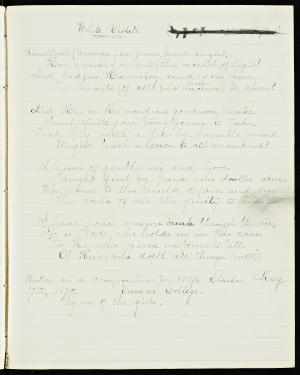 White Violets
Beautiful strange, so pure, and bright,
How came you into this world of light?
Did God, in Heaven, send you here
The hearts of all his to cheer?
Did He, in His wondrous goodness, make
Such spirits your tiny forms to take
That they with a lowly, humble mind
Might teach a lesson to all mankind?
A lesson of gentleness and love
Taught first by Him who dwells above
Who came to this world of pain and sin
The souls of all the guilty to
I hear your answer break through the air,
"It is God, who holds us in His care
'Tis He who gave us power to tell
Of Him, who doth all things well."
Written in a composition by Miss May
17th, 1870. Vassar College.
By one of the girls.